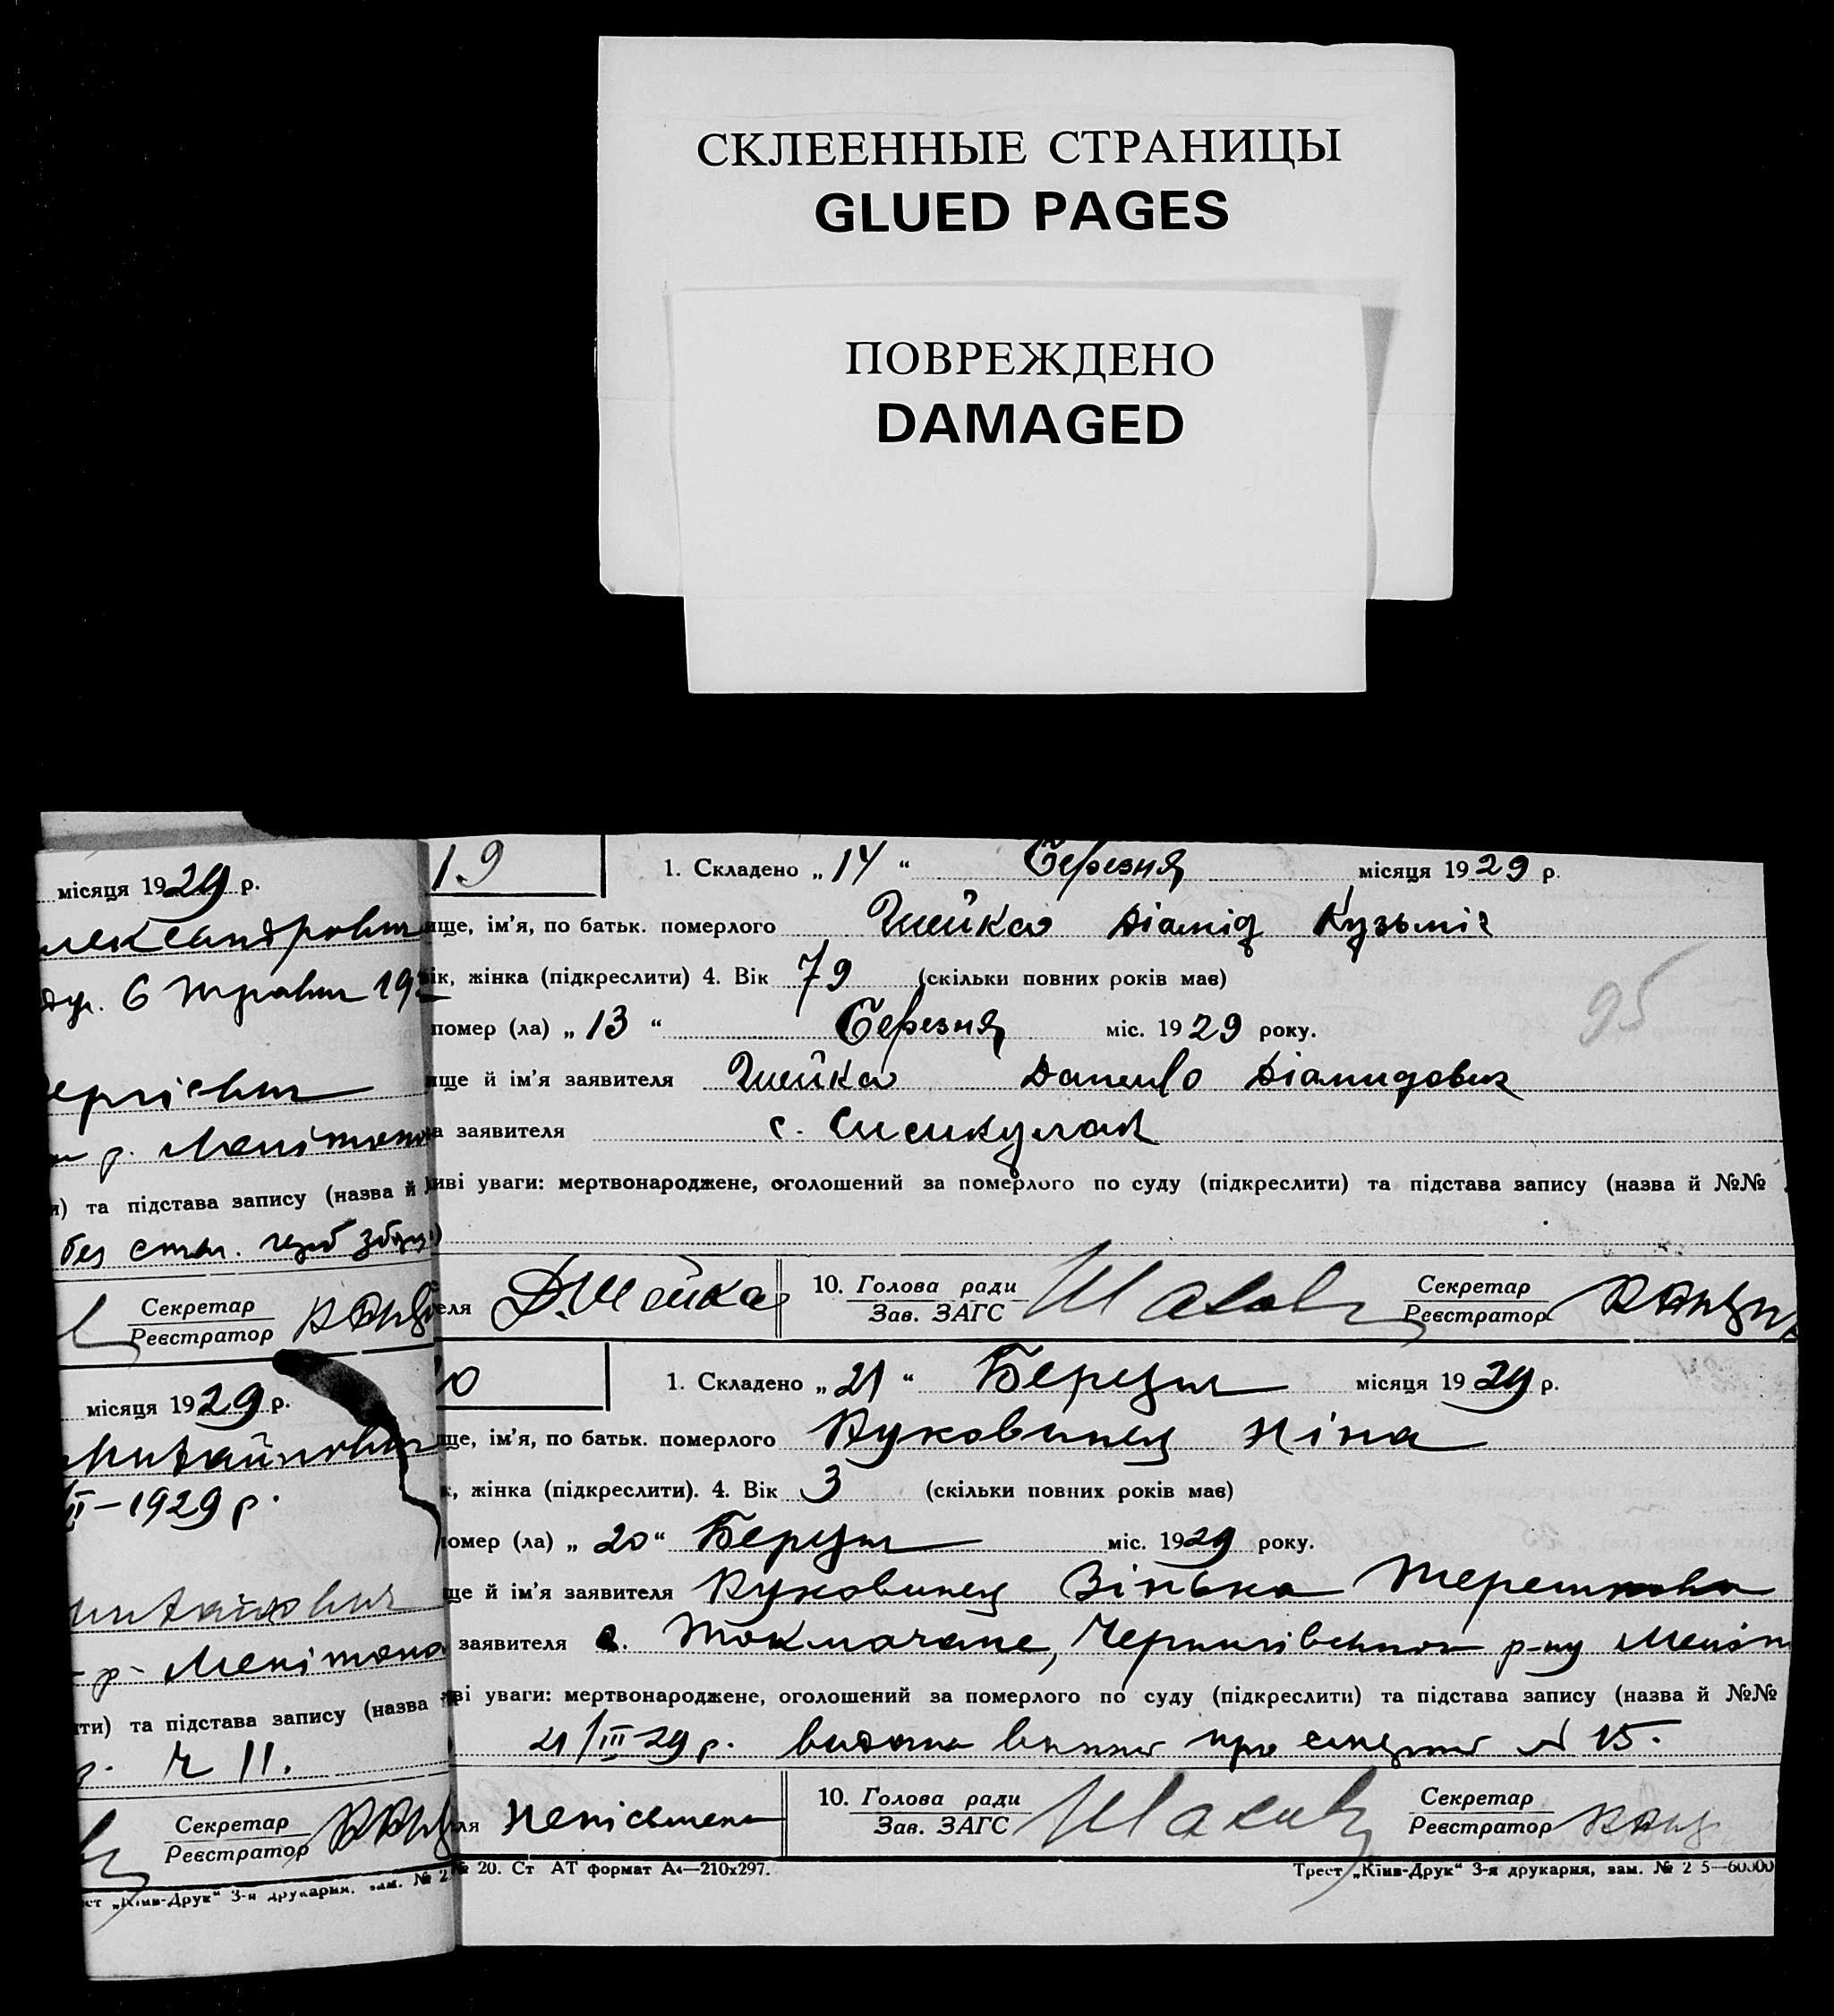 СКЛЕЕННЫЕ СТРАНИЦЫ
GLUED PAGES
ПОВРЕЖДЕНО
DAMAGED
місяця 1929 р.
лександрович
6 Травня 19
р. Меліто
и) та підстава запису (назва й
без
Секретар
Реєстратор
місяця 1929 р.
Михайлович
–1929 р.
р– Меліто
ти) та підстава запису (назва
ч 11.
Секретар
Реєстратор
ест „Київ-Друк“ 3-я друкарня, зам. № 2
19
1. Складено „14“ Березня місяця 1929 р.
ище, ім’я, по батьк. померлого Шейко Діамід Кузьміч
ік, жінка (підкреслити) 4. Вік 79 (скільки повних років має)
помер (ла) „13“ Березня міс. 1929 року.
ище й ім’я заявителя Шейко Данило Діамидович
а заявителя с.
иві уваги: мертвонароджене, оголошений за померлого по суду (підкреслити) та підстава запису (назва й №№
еля Д. Шейко
10. Голова ради
Зав. ЗАГС
Секретар
Реєстратор
0
1. Складено „21“ Березня місяця 1929 р.
ще, ім’я, по батьк. померлого Буковинец Ніна
к, жінка (підкреслити). 4. Вік 3 (скільки повних років має)
помер (ла) „20“ Березня міс. 1929 року.
ще й ім’я заявителя Буковинец Зінька
заявителя с. Токмачане, Чернигівського р-ну Меліт
ві уваги: мертвонароджене, оголошений за померлого по суду (підкреслити) та підстава запису (назва й №№
21/III 29 р. видана про смерть № 15.
ля Непісьмена
10. Голова ради
Зав. ЗАГС
Секретар
Реєстратор
№ 20. Ст АТ формат А4—210х297.
Трест „Київ-Друк“ 3-я друкарня, зам. № 2 5—60000
95